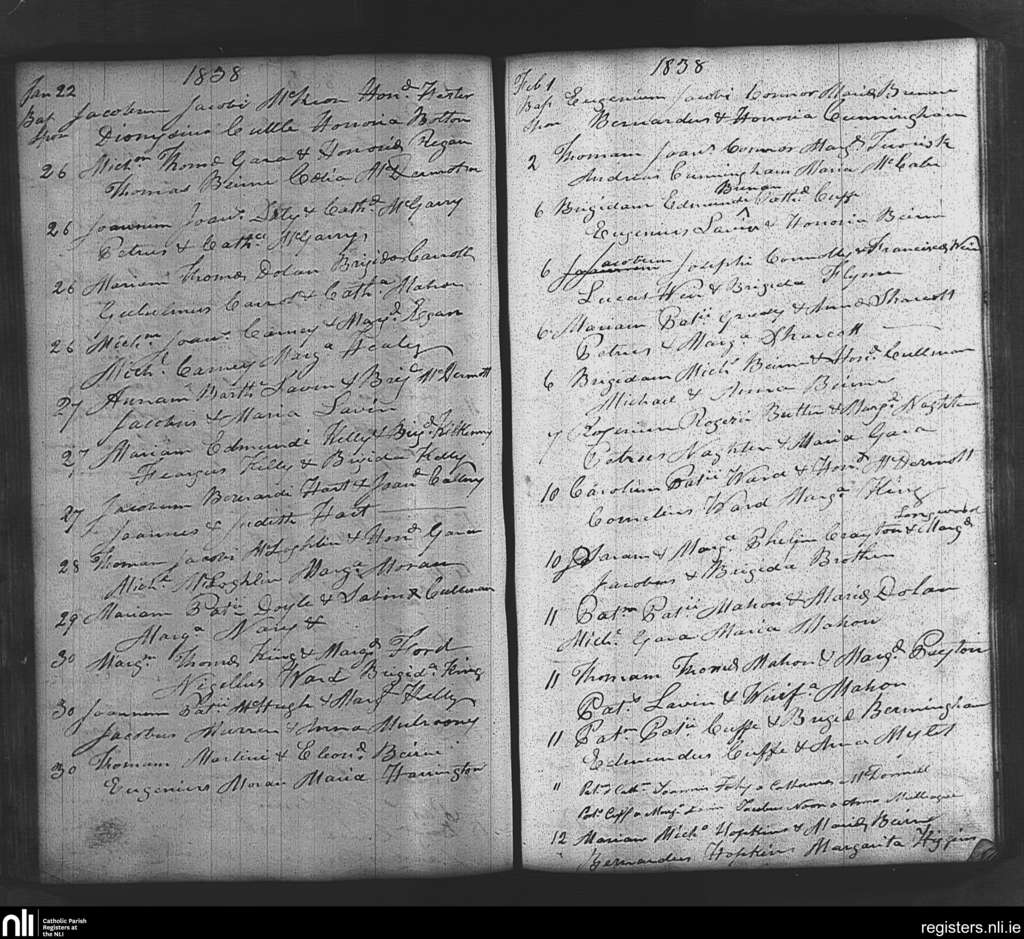 1838
Jan 22 Jacobum Jacobi McKeon Hond. Hester
Bap
Spon Dionysius Cuttle Honoria Bolton
26 Michm Thomæ Gara & Honoriæ Regan
Thomas Beirne Cælia McDermott
26 Joannem Joans. & Cathæ McGarry
Petrus & Catha McGarry
26 Mariam Thomæ Dolan Brigidæ Carroll
Gulielmus & Catha Mahon
26 Michm Joans. Carney & Margæ Regan
Michl. Carney Marga Healey
27 Annam Barthi Lavin & Brigd McDermott
Jacobus & Maria Lavin
27 Mariam Edmundi Kelly & Brigd Kilkenny
Feargus Kelly & Brigida Kelly
27 Jacobum Bernardi Hart & Joanæ
Joannes & Judith Hart
28 Thomam Jacobi McLoghlin & Hond. Gara
Michl McLoghlin Marga Moran
29 Mariam Patii Doyle & Sabinæ Cullinan
Marga Nary &
30 Margm Thomæ King & Margæ Ford
Nigellus Ward Brigida King
30 Joannem Patii McHugh & Margæ Kelly
Jacobus Murren & Anna Mulroony
30 Thomam Martini & Eleonæ Beirne
Eugenius Moran Maria Harrington
1838
Feb 1 Eugenium Jacobi Connor Mariæ Brenan
Bap
Spon Bernardus & Honoria Cunningham
2 Thomam Joans. Connor Margæ
Andreas Cunningham Maria McCabe
Brenan
6 Brigidam Edmundi Cathæ Cuff
Eugenius Lavin & Honoria Beirne
Jacobum
6 Josephi Connolly & Franciscæ Weir
Lucas Weir & Brigida Flynn
6 Mariam Patii Grady & Annæ Sharcott
Petrus & Marga Sharcott
6 Brigidam Michl Beirne & Hond. Cullinan
Michael & Anna Beirne
7 Rogerium Rogerii Butler & Margæ Naghten
Petrus Naghten & Maria Gara
10 Carolum Patii Ward & Hond McDermott
Cornelius Ward Marga King
Longwood
10 Saram & Marga Phelim Crayton & Margæ
Jacobus & Brigida Brothen
11 Patm Patii Mahon & Mariæ Dolan
Michl. Gara Maria Mahon
11 Thomam Thomæ Mahon & Margæ Breyton
Pats. Lavin & Winifa Mahon
11 Patm Patii Cuffe & Brigid Bermingham
Edmundus Cuffe & Anna
11 Patm & Cathm Joannis & Catharinæ McDonnell
Pats. Cuff & Marga Jacobus & Anna
12 Mariam Michl Hopkins & Mariæ Beirne
Bernardus Hopkins Margarita Higgins
nli
Catholic Parish
Registers at
the NLI
registers.nli.ie